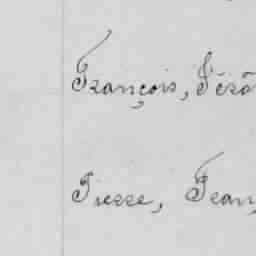 François, Féré
Pierre, Fran